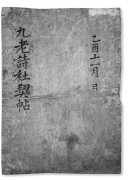 乙酉十一月 日
九老詩社契帖